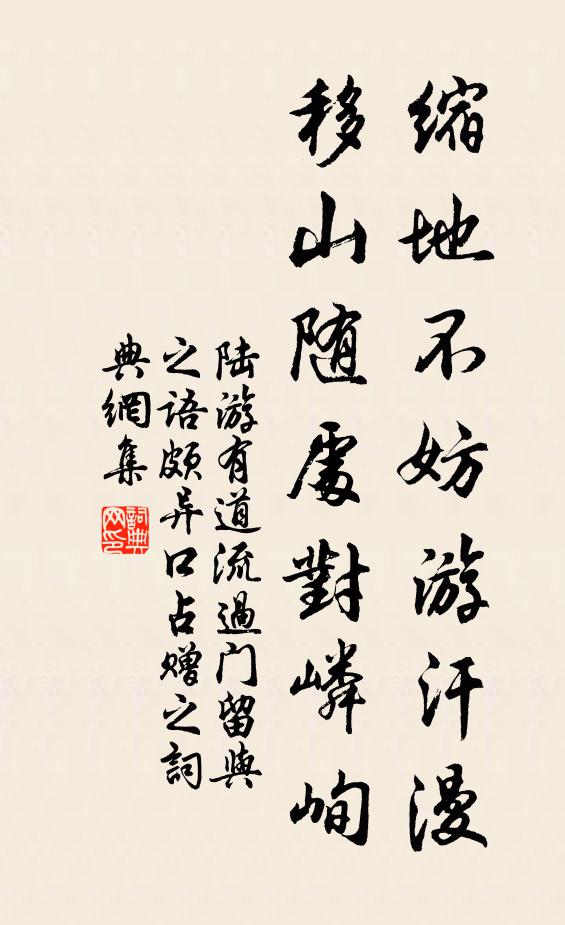 缩地不妨游汗漫
移山随處對嶙峋
陆游有道流過门留與
之语颇异口占赠之詞
典網集
詞典
网印